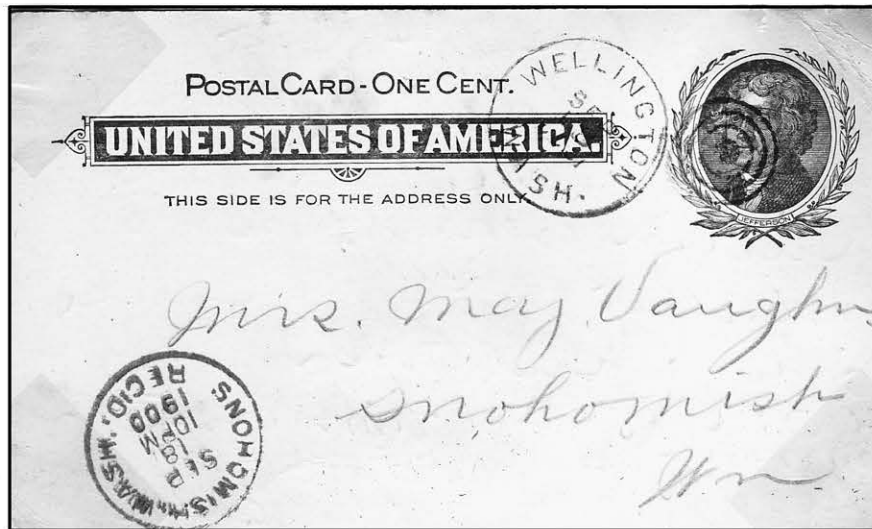 POSTAL CARD - ONE CENT.
UNITED STATES OF AMERICA.
THIS SIDE IS FOR THE ADDRESS ONLY.
WELLINGTON
WASH.
JEFFERSON
Mrs. May Vaughn
Snohomish
Wn
SNOHOMISH, WASH.
SEP
18
10 PM
1900
REC'D.